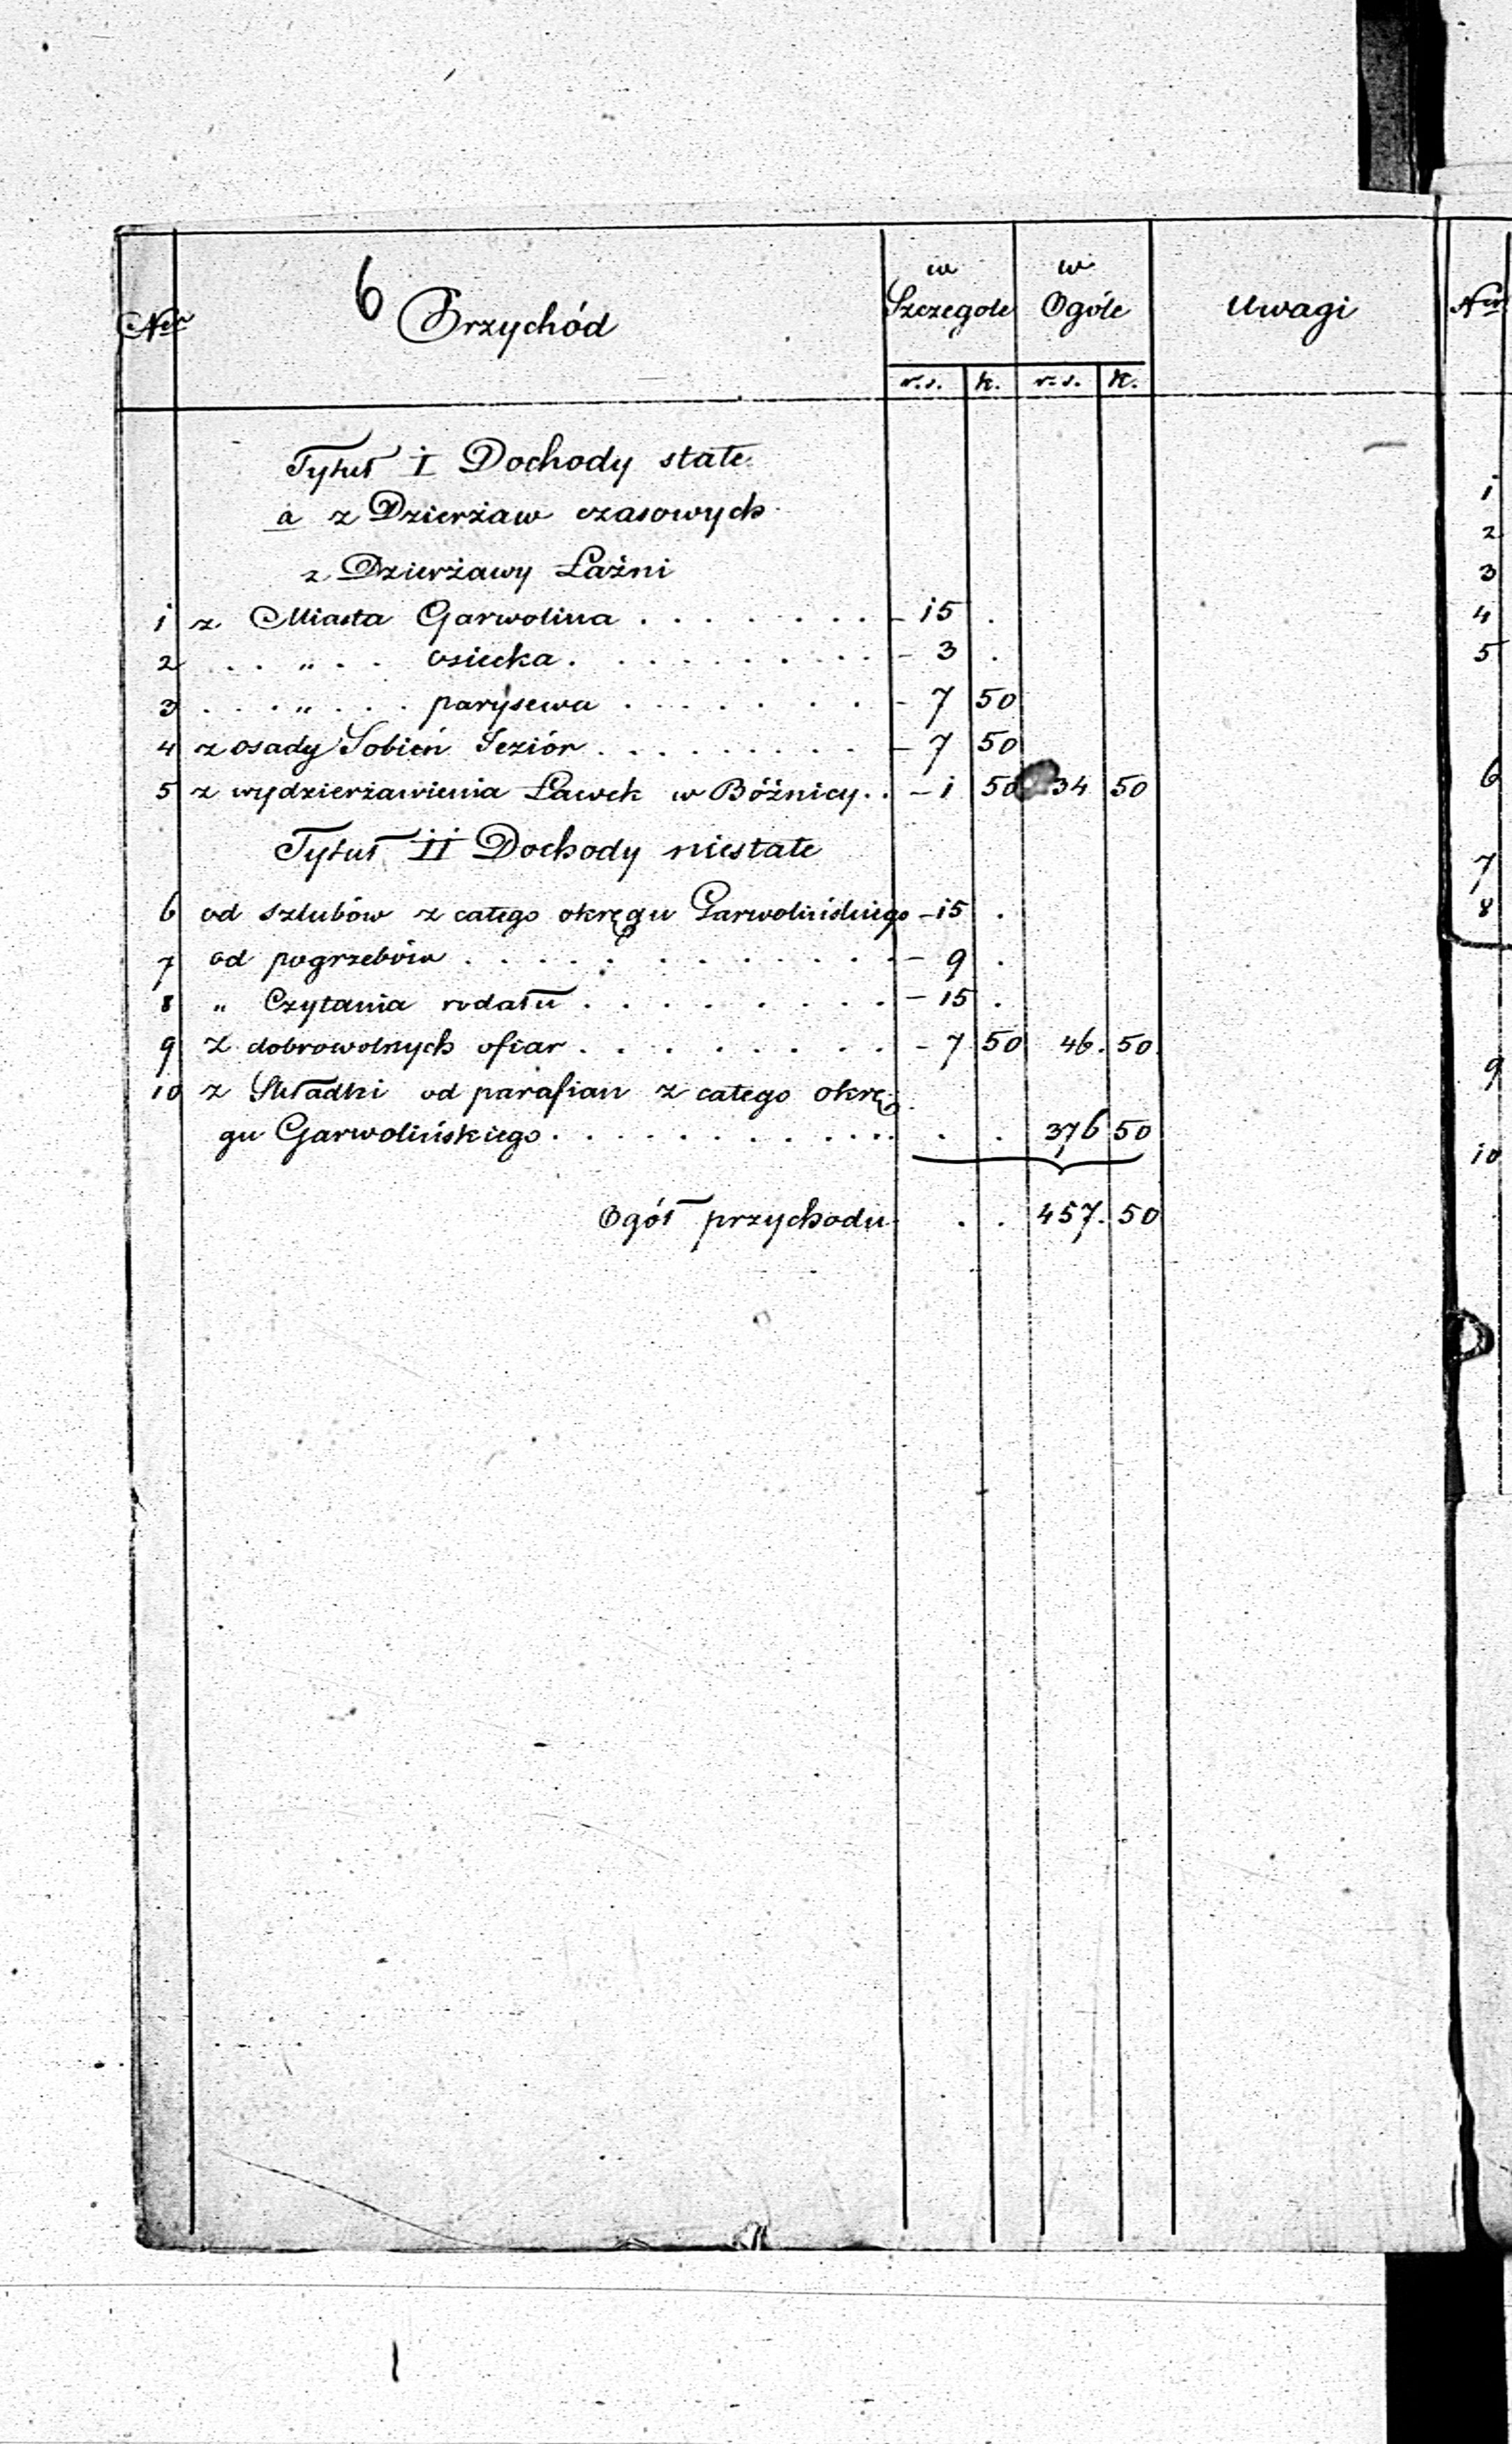 6
Ner Przychód w Szczegole w Ogóle Uwagi Ner
r.s. k. r.s. k.
Tytuł I Dochody stałe
a z Dzierżaw czasowych
z Dzierżawy Łaźni
1 z Miasta Garwolina . . . . . . . - 15 .
2 . . " . . osiecka . . . . . . . . - 3 .
3 . . . " . . . parysewa . . . . . . . - 7 50
4 z osady Sobień Jeziór . . . . . . . - 7 50
5 z wydzierżawienia Ławek w Bóżnicy . . - 1 50 34 50
Tytuł II Dochody niestałe
6 od szlubów z całego okręgu Garwolińskiego - 15 .
7 od pogrzebów . . . . . . . . . . . - 9 .
8 " Czytania rodału . . . . . . . . - 15 .
9 z dobrowolnych ofiar . . . . . . . . - 7 50 46. 50
10 z Składki od parafian z całego okrę
gu Garwolińskiego . . . . . . . . . . . . . 376 50
Ogół przychodu . . 457. 50
1
2
3
4
5
6
7
8
9
10